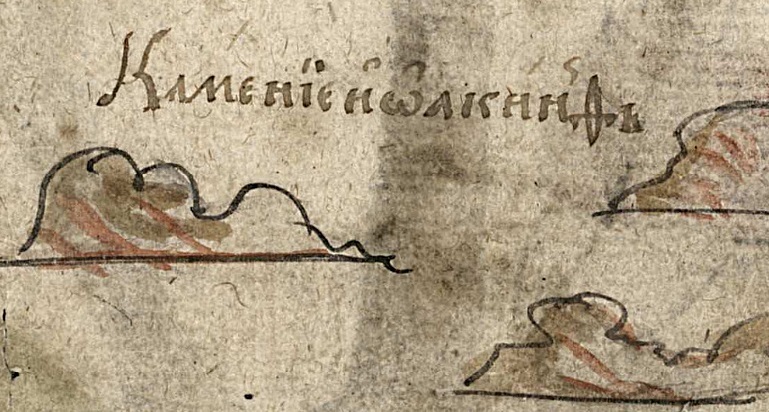 Камение иѡакинѳъ